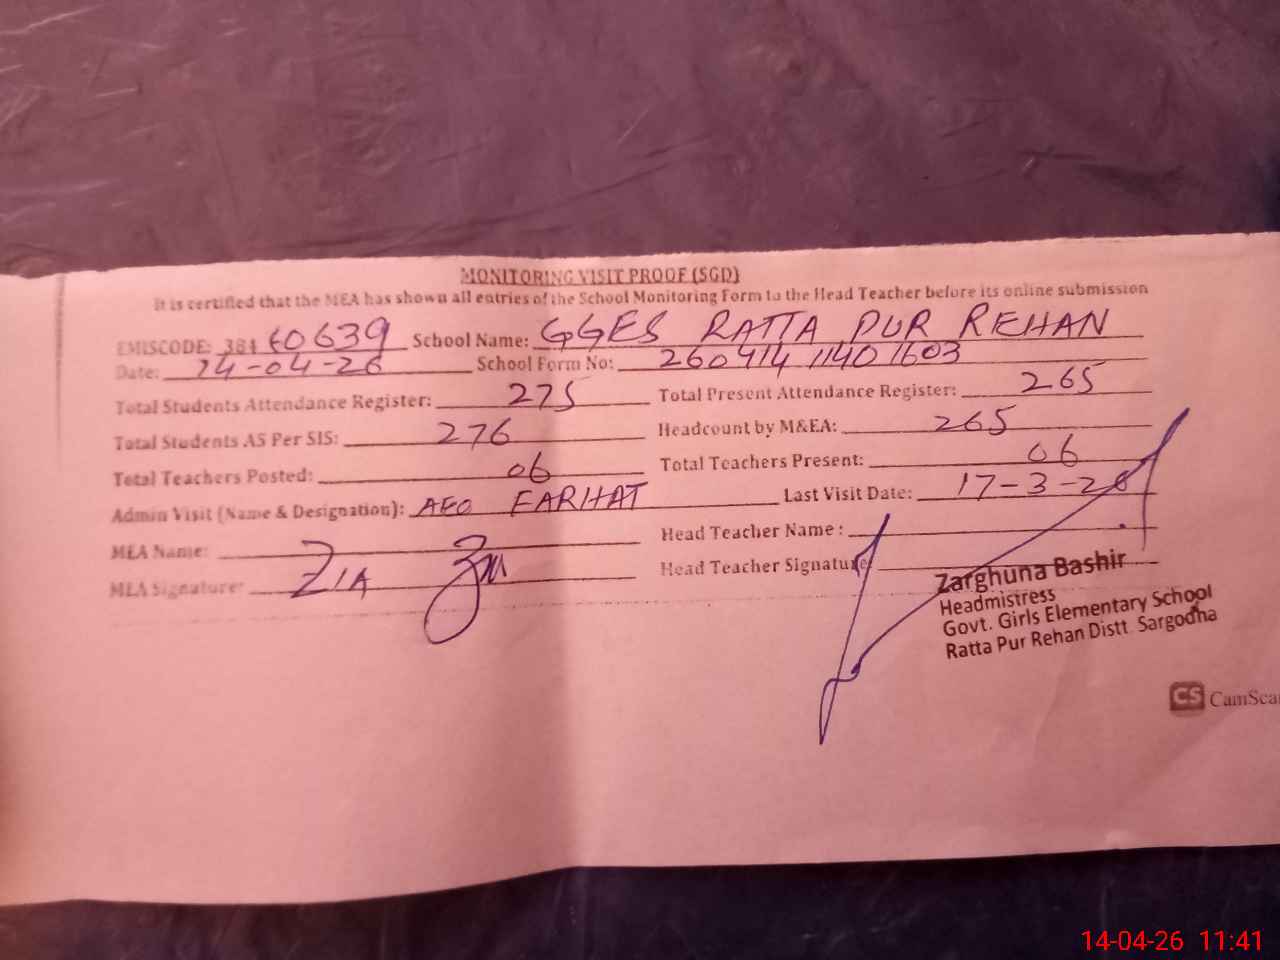 MONITORING VISIT PROOF (SGD)
It is certified that the MEA has shown all entries of the School Monitoring Form to the Head Teacher before its online submission
EMISCODE: 384 60639 School Name: GGES RATTA PUR REHAN
Date: 14-04-26 School Form No: 260414 1140 1603
Total Students Attendance Register: 275 Total Present Attendance Register: 265
Total Students AS Per SIS: 276 Headcount by M&EA: 265
Total Teachers Posted: 06 Total Teachers Present: 06
Admin Visit (Name & Designation): AEO FARHAT Last Visit Date: 17-3-26
MEA Name: Head Teacher Name :
MEA Signature: ZIA Head Teacher Signature
Zarghuna Bashir
Headmistress
Govt. Girls Elementary School
Ratta Pur Rehan Distt. Sargodha
CS CamScan
14-04-26 11:41